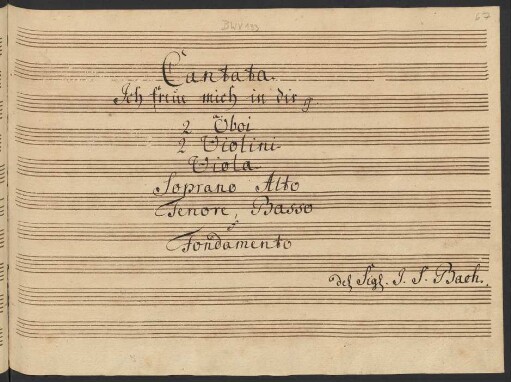 BWV 133
67
Cantata.
Ich freue mich in dir
2 Oboi
2 Violini
Viola
Soprano Alto
Tenore, Basso
Fondamento
del Sigl. J. S. Bach.